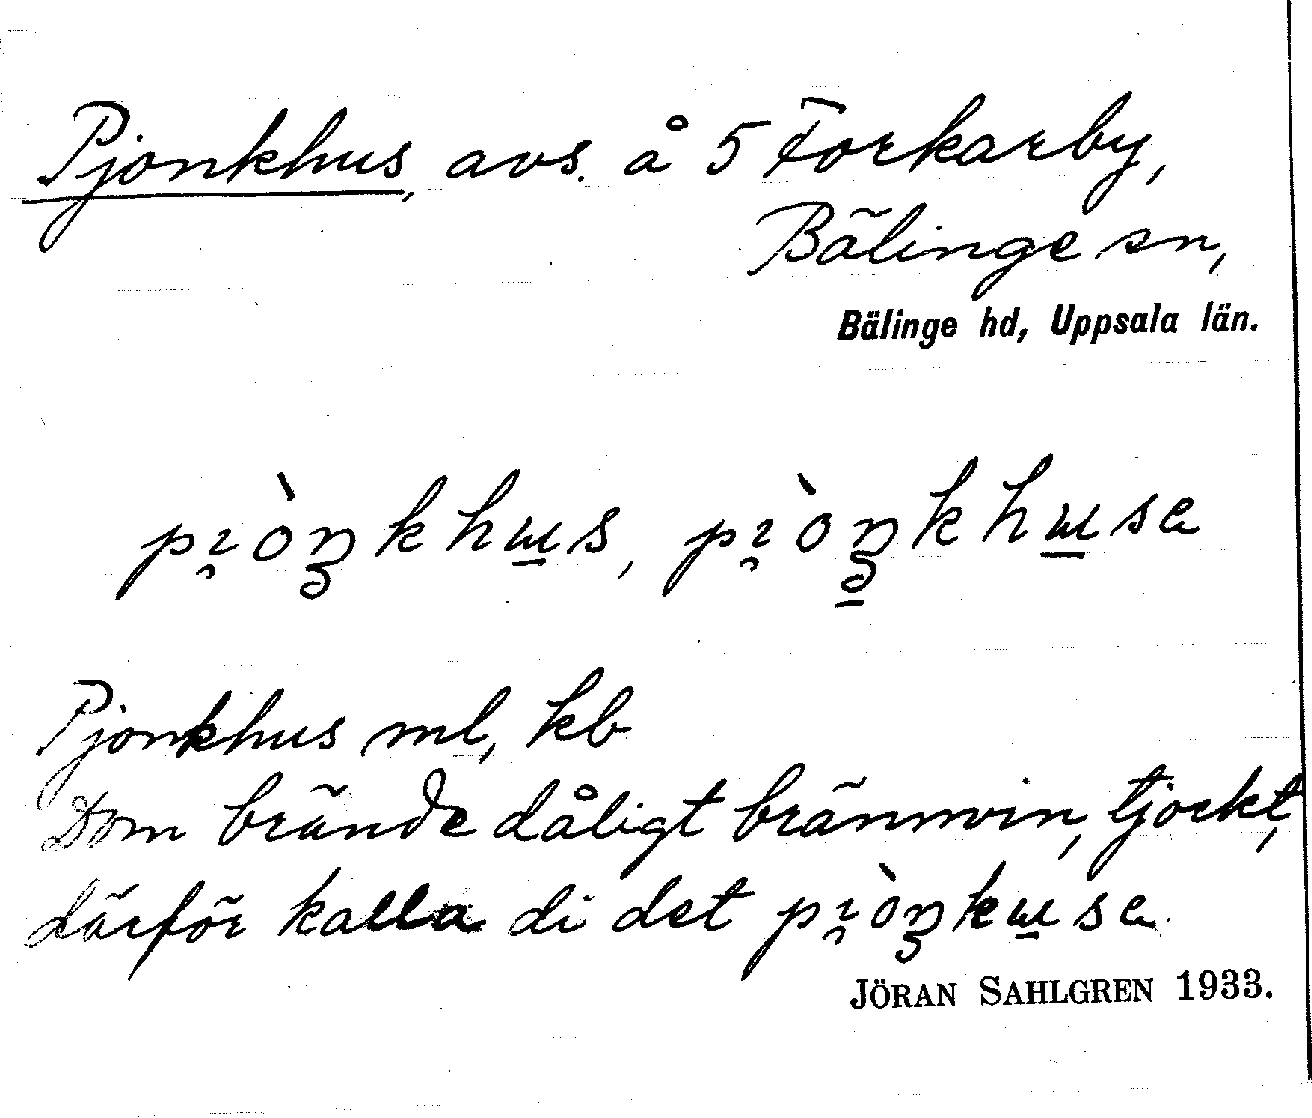 Pjonkhus, avs. å 5 Forkarby,
Bälinge sn,
Bälinge hd, Uppsala län.
pɪ̯òŋkhɯ̲s, pɪ̯òŋ̲khɯ̲sa
Pjonkhus ml, kb
Dom brände dåligt brännvin, tjockt,
därför kalla di det pɪ̯òŋkɯ̲sa.
JÖRAN SAHLGREN 1933.